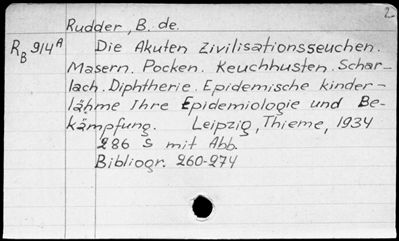 2
Rudder, B. de.
R_B 914^A Die Akuten Zivilisationsseuchen.
Masern. Pocken. Keuchhusten. Schar-
lach. Diphtherie. Epidemische kinder-
lähme Ihre Epidemiologie und Be-
kämpfung. Leipzig, Thieme, 1934
286 S mit Abb.
Bibliogr. 260-274